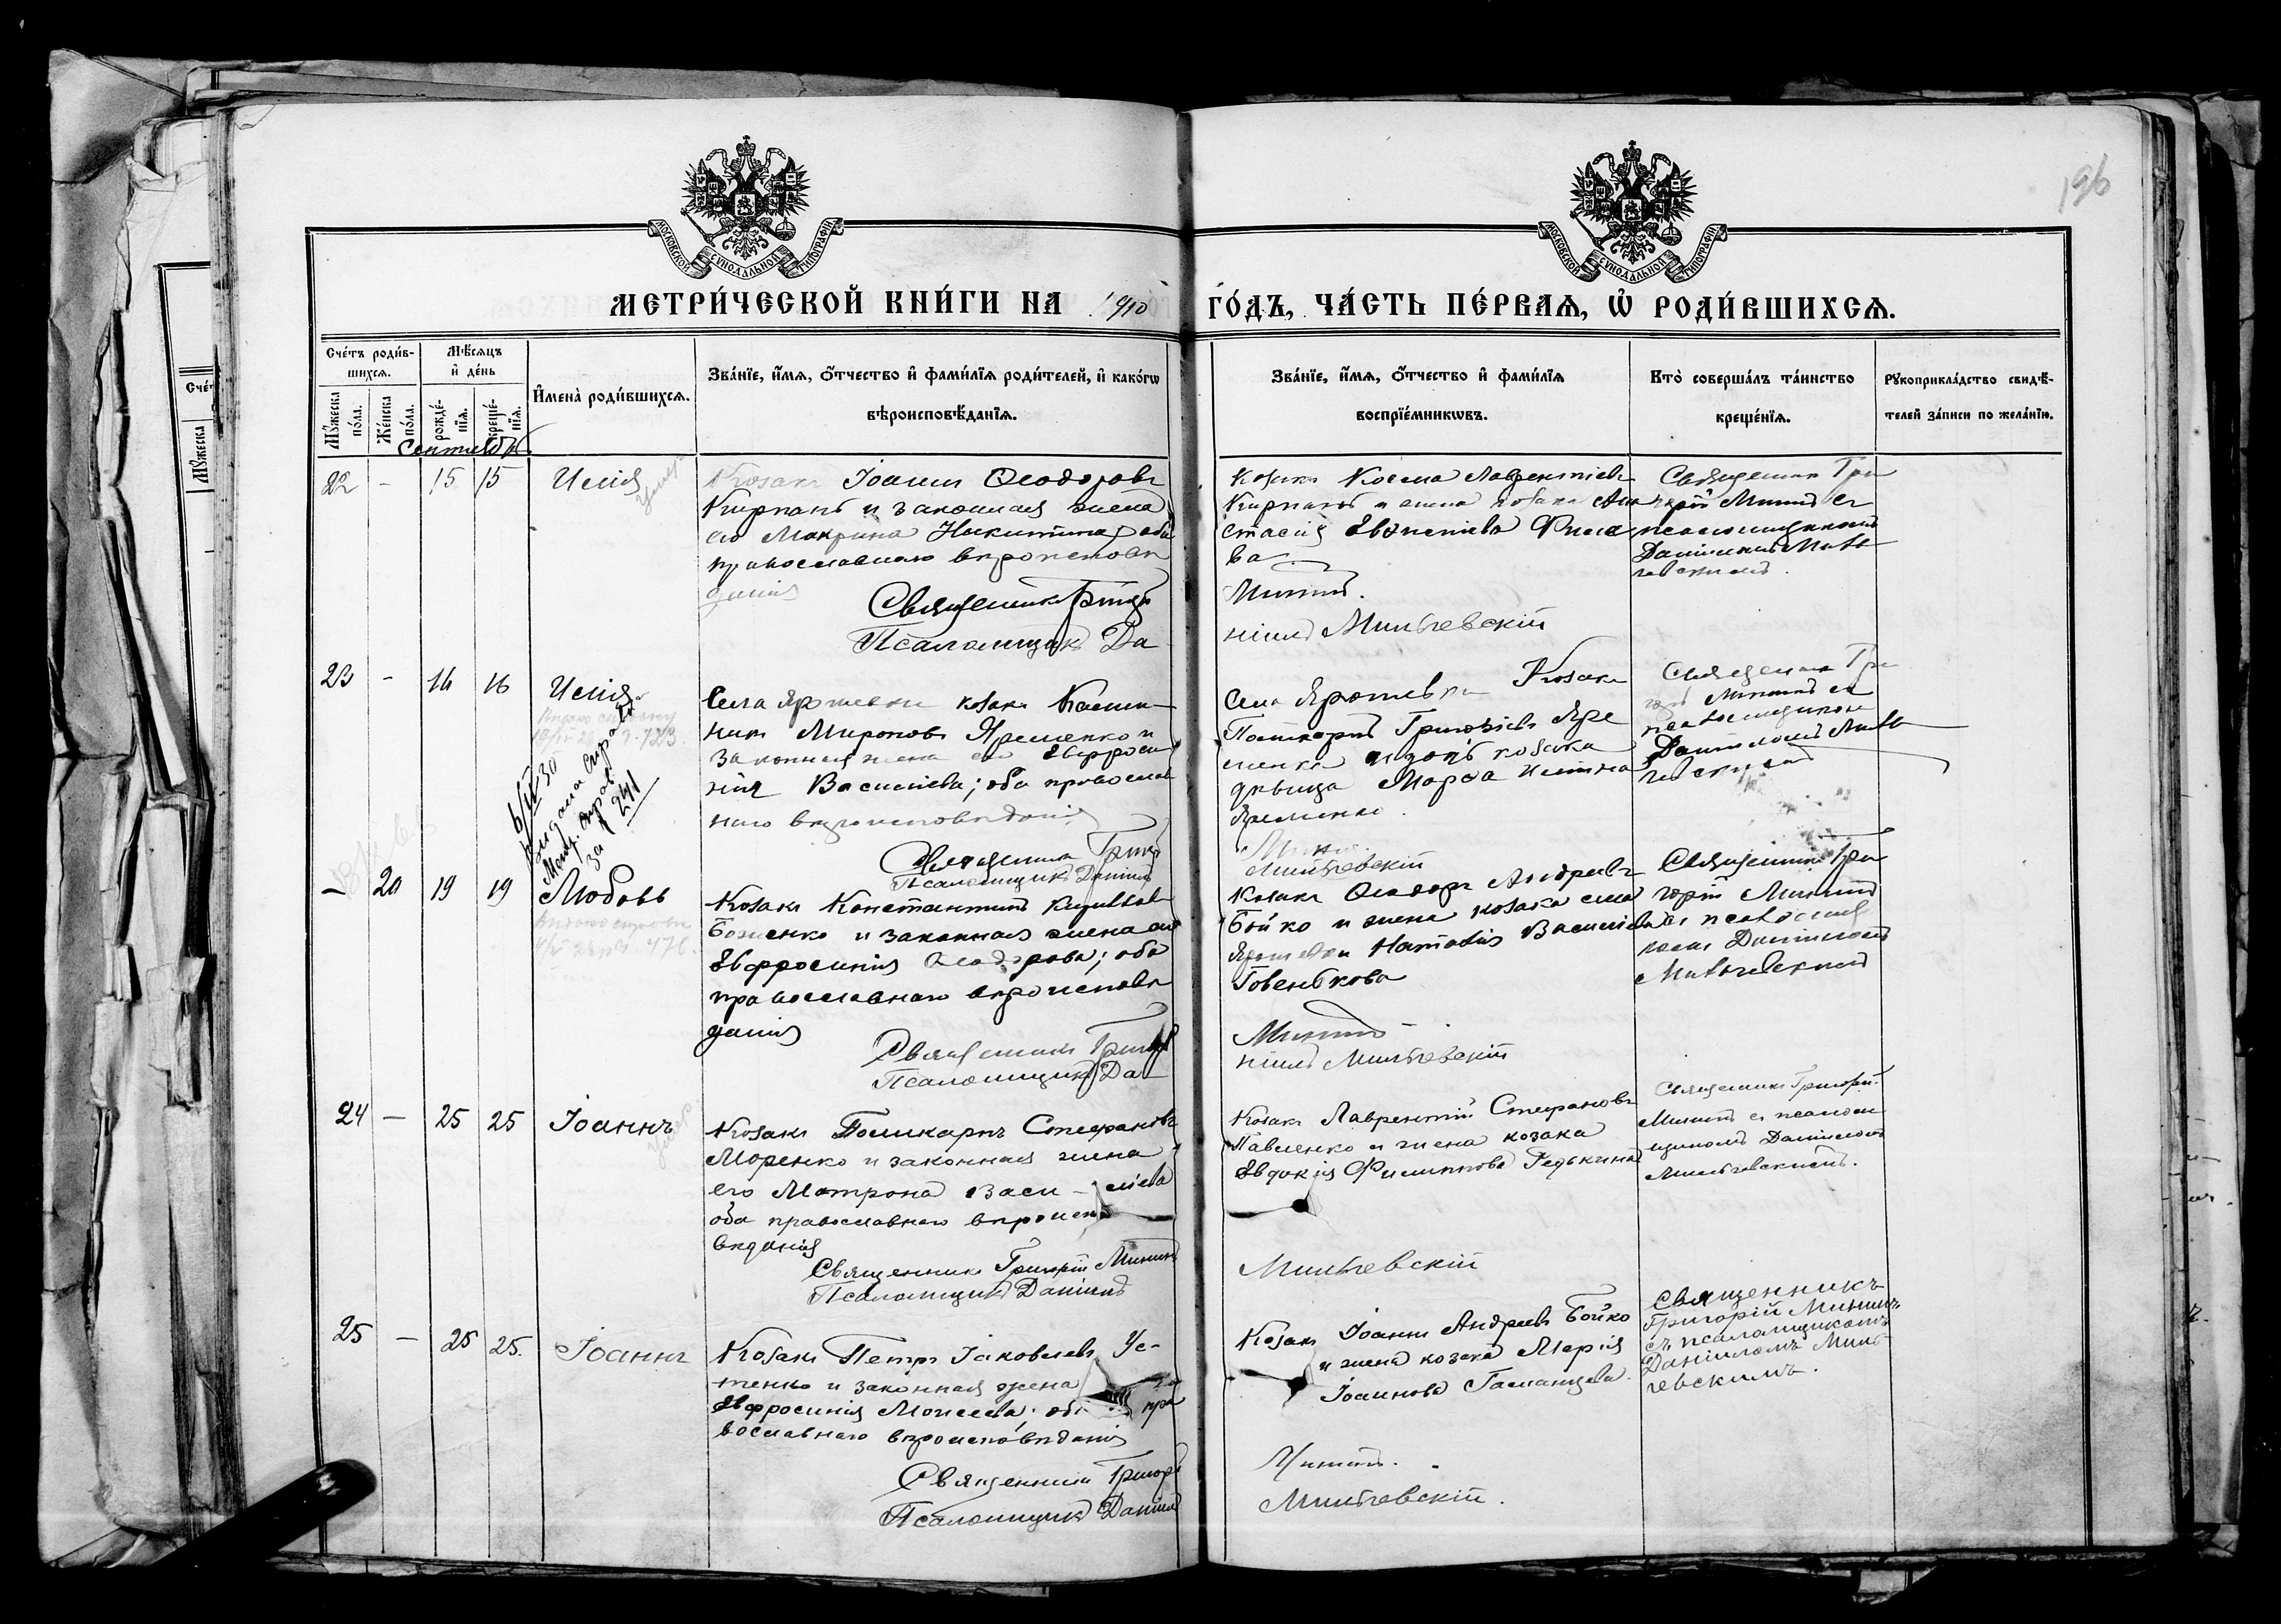 196
МОСКОВСКОЙ СУНОДАЛЬНОЙ ТИПОГРАФІИ
МОСКОВСКОЙ СУНОДАЛЬНОЙ ТИПОГРАФІИ
МЕТРИ́ЧЕСКОЙ КНИ́ГИ НА 1910 ГО́ДЪ, ЧА́СТЬ ПЕ́РВАѦ, Ѡ҆ РОДИ́ВШИХСѦ.
Сче́тъ роди́в-
шихсѧ.
Мѣ́сѧцъ
и҆ де́нь
Мꙋ́жеска
по́ла.
Же́нска
по́ла.
рожде́-
нїѧ.
креще́-
нїѧ.
И҆мена̀ роди́вшихсѧ.
Зва́нїе, и҆́мѧ, ѻ҆́тчество и҆ фами́лїѧ роди́телей, и҆ како́гѡ
вѣроисповѣ́данїѧ.
Зва́нїе, и҆́мѧ, ѻ҆́тчество и҆ фами́лїѧ
воспрїе́мникѡвъ.
Кто̀ соверша́лъ та́инство
креще́нїѧ.
Рꙋкоприкла́дство свидѣ́-
телей за́писи по жела́нїю.
Сентябрь
22 - 15 15 Илія
Козакъ Іоаннъ Ѳеодоровъ
Кирпань и законная жена
его Макрина Никитина, оба
православнаго вѣроисповѣ
данія
Священникъ Григо
Псаломщикъ Да
Козакъ Косма Лаврентіевъ
Кирпань и жена козака Ана
стасія
ва
Мининъ.
ніилъ Мильчевскій
Священникъ Гри
горій Мининъ съ
псаломщикомъ
Даніиломъ Миль
чевскимъ.
23 - 16 16 Илія
6/II 30
241
Села Ярошевки козакъ
Мироновъ Яременко и
законная жена его Евфроси
нія Васильева; оба православ
наго вѣроисповѣданія
Священникъ Григор
Псаломщикъ Даніилъ
Села Ярошевки Козакъ
Поликарпъ Григорьевъ Яре
менко и дочь козака
дѣвица Марѳа
Яременко.
Мининъ
Мильчевскій
Священникъ Гри
горій Мининъ съ
псаломщикомъ
Даніиломъ Миль
чевскимъ
- 20 19 19 Любовь
476.
Козакъ Константинъ
Боженко и законная жена его
Евфросинія Ѳеодорова; оба
православнаго вѣроисповѣ
данія
Священникъ Григор
Псаломщикъ Да
Козакъ Ѳеодоръ Андреевъ
Бойко и жена козака села
Ярошевки Наталія Васильева
Говенькова
Мининъ
ніилъ Мильчевскій
Священникъ Гри
горій Мининъ
съ псаломщи
комъ Даніиломъ
Мильчевскимъ
24 - 25 25 Іоаннъ
Козакъ Поликарпъ Стефановъ
Моренко и законная жена
его Матрона Васи-льева
оба православнаго вѣроиспо
вѣданія
Священникъ Григорій Мининъ
Псаломщикъ Даніилъ
Козакъ Лаврентій Стефановъ
Павленко и жена козака
Евдокія Филиппова Редькина
Мильчевскій
Священникъ Григорій
Мининъ съ псалом
щикомъ Даніиломъ
Мильчевскимъ.
25 - 25 25. Іоаннъ
Козакъ Петръ Іаковлевъ Ус-
тенко и законная жена его
Евфросинія Моисеева; оба пра
вославнаго вѣроисповѣданія
Священникъ Григор
Псаломщикъ Даніилъ
Козакъ Іоаннъ Андреевъ Бойко
и жена козака Марія
Іоаннова
Мининъ.
Мильчевскій.
Священникъ
Григорій Мининъ
съ псаломщикомъ
Даніиломъ Миль-
чевскимъ.